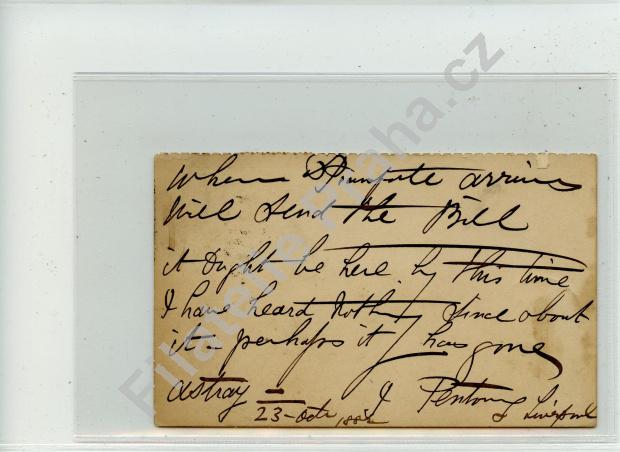 When arrives
Will Send the Bill
it Ought be here by this time
I have heard Nothg Since about
it - perhaps it has gone
astray =
23 - Octr 188
Liverpool
Filatelie Praha.cz